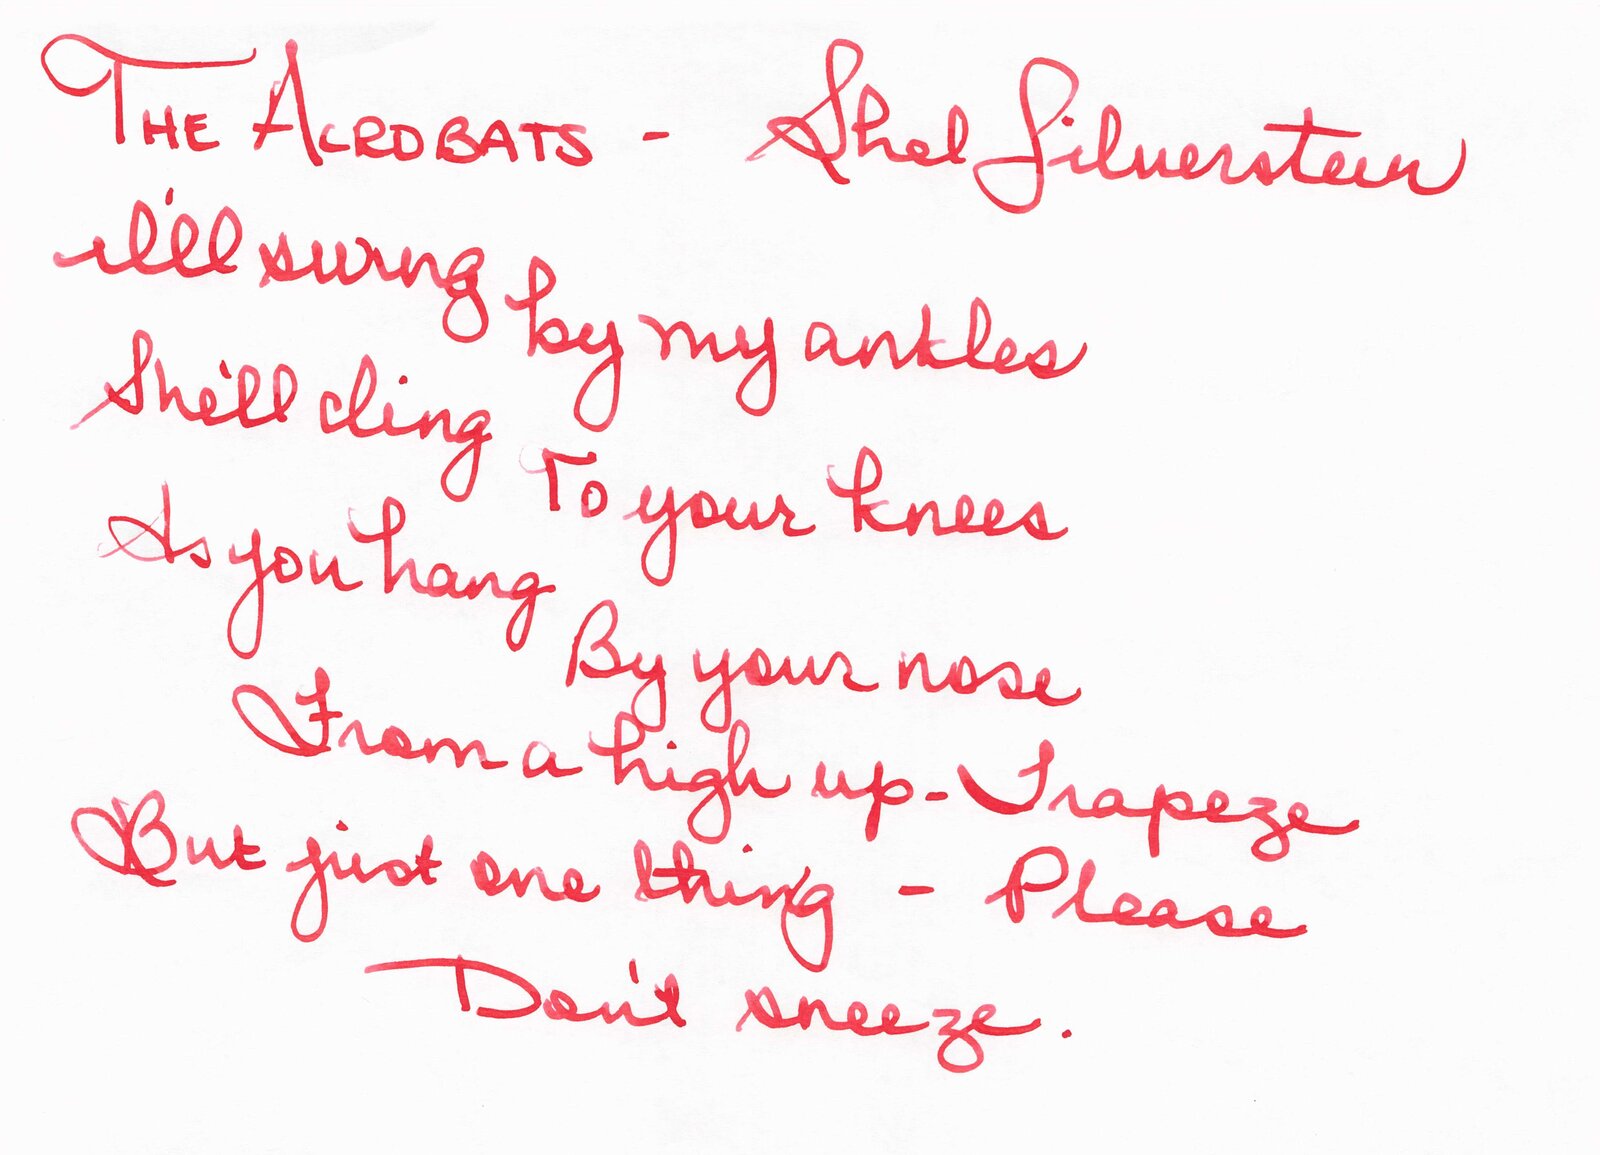 THE ACROBATS - Shel Silverstein
i'll swing by my ankles
She'll cling To your knees
As you hang By your nose
From a high up - Trapeze
But just one thing - Please
Don't sneeze.